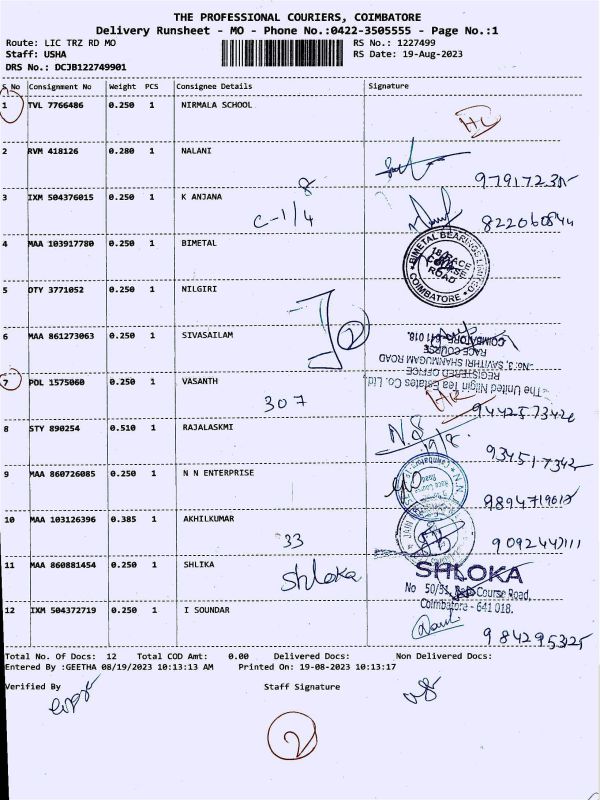 THE PROFESSIONAL COURIERS, COIMBATORE
Delivery Runsheet - MO - Phone No.:0422-3505555 - Page No.:1
Route: LIC TRZ RD MO RS No.: 1227499
Staff: USHA RS Date: 19-Aug-2023
DRS No.: DCJB122749901
S No Consignment No Weight PCS Consignee Details Signature
1 TVL 7766486 0.250 1 NIRMALA SCHOOL
2 RVM 418126 0.280 1 NALANI
3 IXM 504376015 0.250 1 K ANJANA
8
C-1/4
4 MAA 103917780 0.250 1 BIMETAL
BIMETAL BEARINGS LIMITED
18 RACE COURSE ROAD
COIMBATORE
5 DTY 3771052 0.250 1 NILGIRI
6 MAA 861273063 0.250 1 SIVASAILAM
The United Nilgiri Tea Estates Co. Ltd.
REGISTERED OFFICE
No.3, SAVITHRI SHANMUGAM ROAD
RACE COURSE
COIMBATORE-641 018.
7 POL 1575060 0.250 1 VASANTH
307
8 STY 890254 0.510 1 RAJALASKMI
9 MAA 860726085 0.250 1 N N ENTERPRISE
10 MAA 103126396 0.385 1 AKHILKUMAR
33
11 MAA 860881454 0.250 1 SHLIKA
Shloka
SHLOKA
No 50/51, Race Course Road,
Coimbatore - 641 018.
12 IXM 504372719 0.250 1 I SOUNDAR
Total No. Of Docs: 12 Total COD Amt: 0.00 Delivered Docs: Non Delivered Docs:
Entered By :GEETHA 08/19/2023 10:13:13 AM Printed On: 19-08-2023 10:13:17
Verified By Staff Signature
2